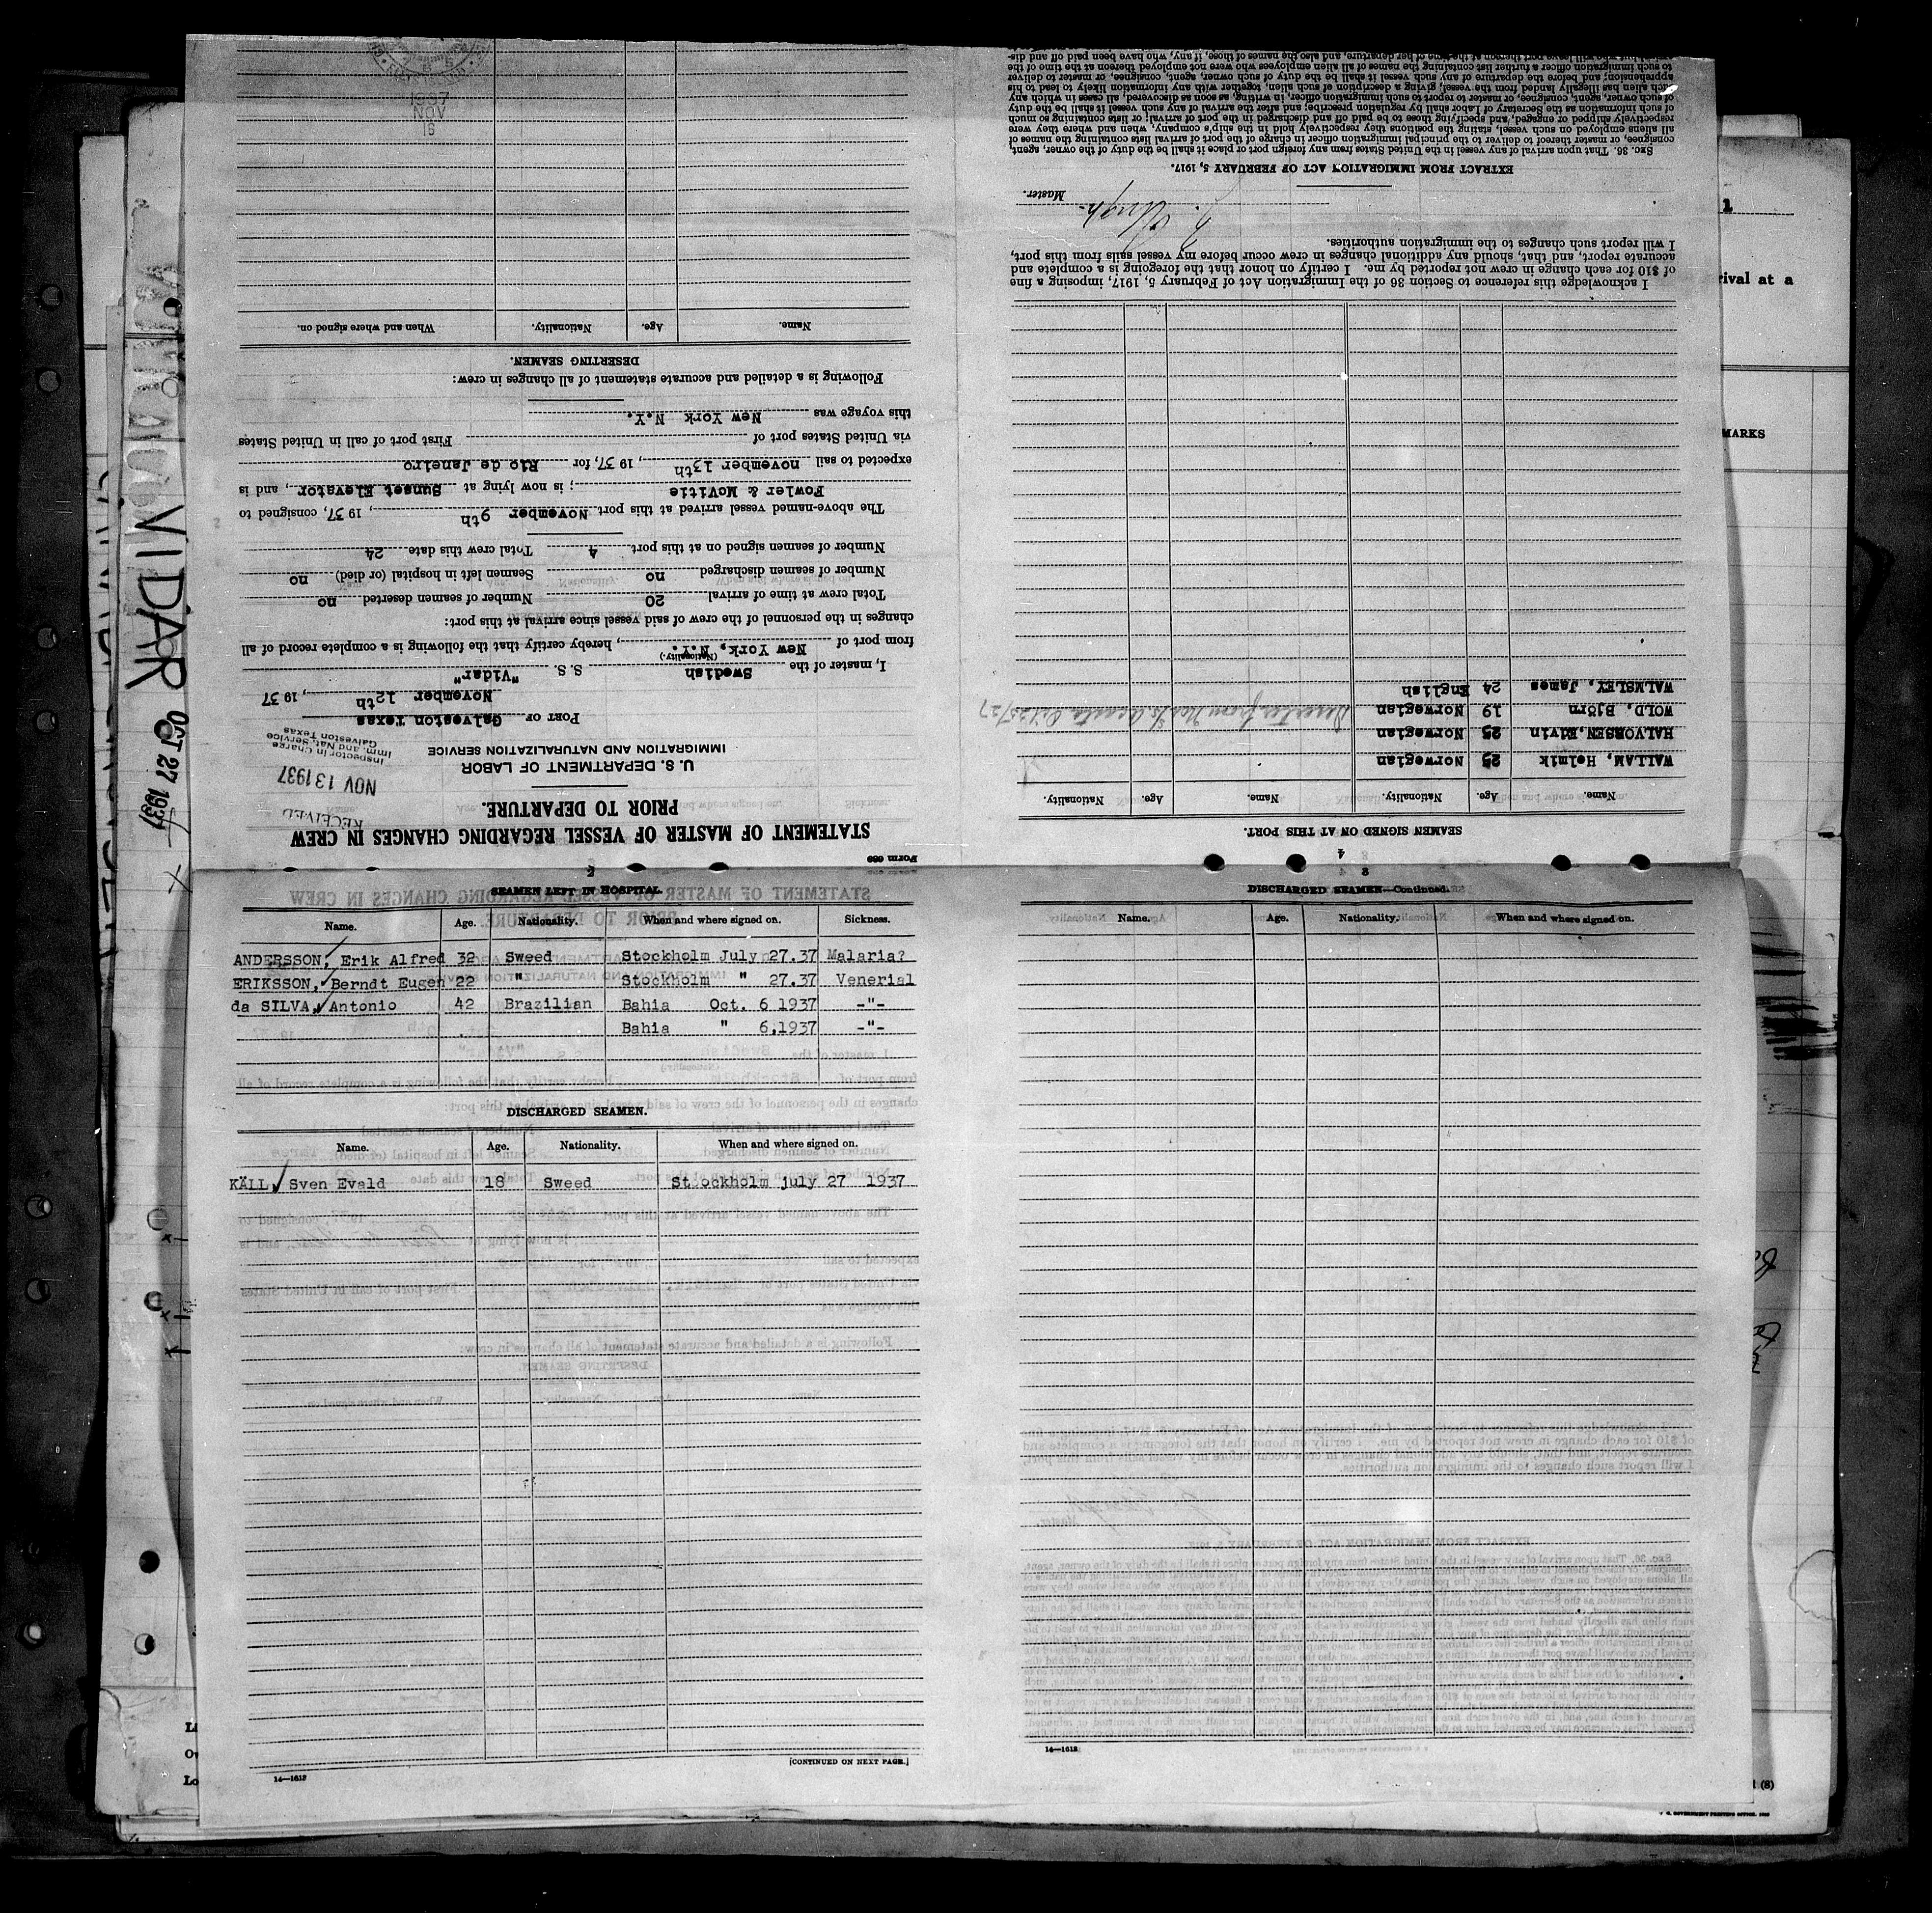 VIDAR
OCT 27 1937
1
rival at a
MARKS
Form 689
STATEMENT OF MASTER OF VESSEL REGARDING CHANGES IN CREW
PRIOR TO DEPARTURE.
RECEIVED
NOV 13 1937
Inspector in Charge
Imm. and Nat. Service
Galveston Texas
U. S. DEPARTMENT OF LABOR
IMMIGRATION AND NATURALIZATION SERVICE
PORT OF Galveston Texas
November 12th, 1937
I, master of the Swedish S. S. "Vidar"
(Nationality.)
from port of New York, N.Y., hereby certify that the following is a complete record of all
changes in the personnel of the crew of said vessel since arrival at this port:
Total crew at time of arrival 20 Number of seamen deserted no
Number of seamen discharged no Seamen left in hospital (or died) no
Number of seamen signed on at this port. 4 Total crew this date 24
The above-named vessel arrived at this port November 9th, 1937, consigned to
Fowler & McVitie; is now lying at Sunset Elevator, and is
expected to sail november 13th, 1937, for Rio de Janeiro
via United States port of First port of call in United States
this voyage was New York N.Y.
Following is a detailed and accurate statement of all changes in crew:
DESERTING SEAMEN.
Name. Age. Nationality. When and where signed on.
1937
NOV
16
4
SEAMEN SIGNED ON AT THIS PORT.
Name. Age. Nationality. Name. Age. Nationality.
WALLAM, Helmik 25 Norwegian
HALVORSEN, Edvin 25 Norwegian
WOLD, Björn 19 Norwegian Deserter from
WALMSLEY, James 24 English
I acknowledge this reference to Section 36 of the Immigration Act of February 5, 1917, imposing a fine
of $10 for each change in crew not reported by me. I certify on honor that the foregoing is a complete and
accurate report, and that, should any additional changes in crew occur before my vessel sails from this port,
I will report such changes to the immigration authorities.
Master.
EXTRACT FROM IMMIGRATION ACT OF FEBRUARY 5, 1917.
SEC. 36. That upon arrival of any vessel in the United States from any foreign port or place it shall be the duty of the owner, agent,
consignee, or master thereof to deliver to the principal immigration officer in charge of the port of arrival lists containing the names of
all aliens employed on such vessel, stating the positions they respectively hold in the ship's company, when and where they were
respectively shipped or engaged, and specifying those to be paid off and discharged in the port of arrival; or lists containing so much
of such information as the Secretary of Labor shall by regulation prescribe; and after the arrival of any such vessel it shall be the duty
of such owner, agent, consignee, or master to report to such immigration officer, in writing, as soon as discovered, all cases in which any
such alien has illegally landed from the vessel, giving a description of such alien, together with any information likely to lead to his
apprehension; and before the departure of any such vessel it shall be the duty of such owner, agent, consignee, or master to deliver
to such immigration officer a further list containing the names of all alien employees who were not employed thereon at the time of the
arrival but who will leave port thereon at the time of her departure, and also the names of those, if any, who have been paid off and dis-
SEAMEN LEFT IN HOSPITAL.
Name. Age. Nationality. When and where signed on. Sickness.
ANDERSSON, Erik Alfred 32 Sweed Stockholm July 27.37 Malaria?
ERIKSSON, Berndt Eugen 22 " Stockholm " 27.37 Venerial
da SILVA, Antonio 42 Brazilian Bahia Oct. 6 1937 -"-
Bahia " 6.1937 -"-
DISCHARGED SEAMEN.
Name. Age. Nationality. When and where signed on.
KÄLL, Sven Evald 18 Sweed Stockholm july 27 1937
[CONTINUED ON NEXT PAGE.]
14—1612
3
DISCHARGED SEAMEN—Continued.
Name. Age. Nationality. When and where signed on.
14—1612
(8)